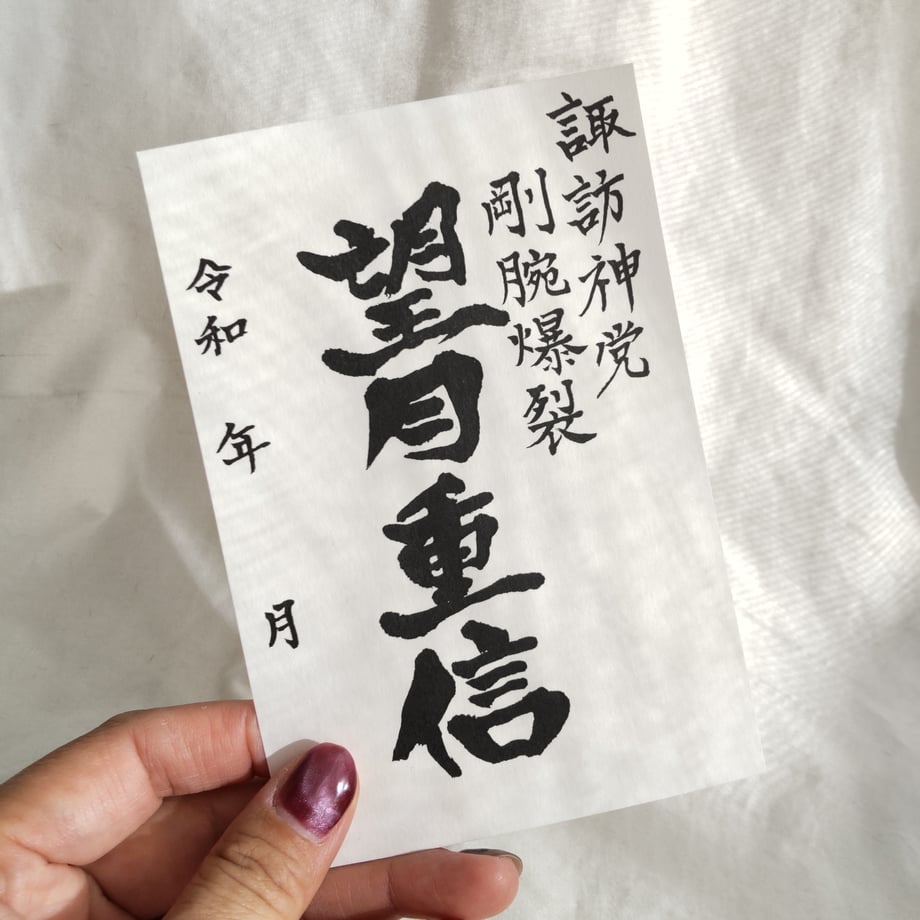 諏訪神党
剛腕爆裂
望月重信
令和 年 月